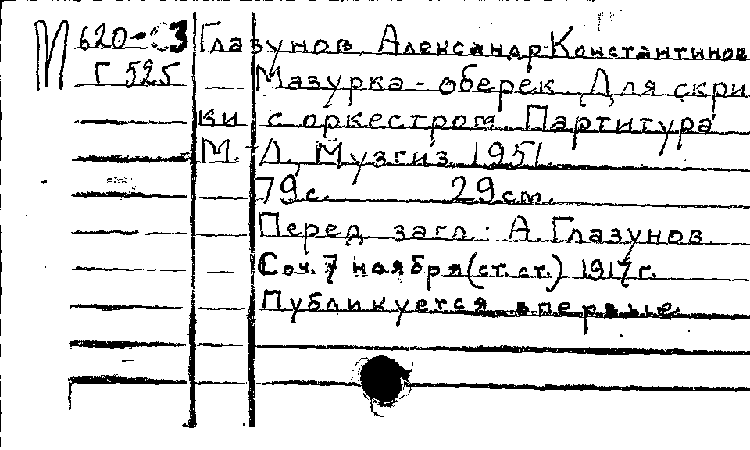 М 620-3 Глазунов Александр Константинов
Г 525 Мазурка-оберек Для скри
ки с оркестром. Партитура
М.-Л., Музгиз, 1951.
79с. 29см.
Перед загл.: А. Глазунов
Соч. 7 ноября (ст. ст.) 1917 г.
Публикуется впервые.